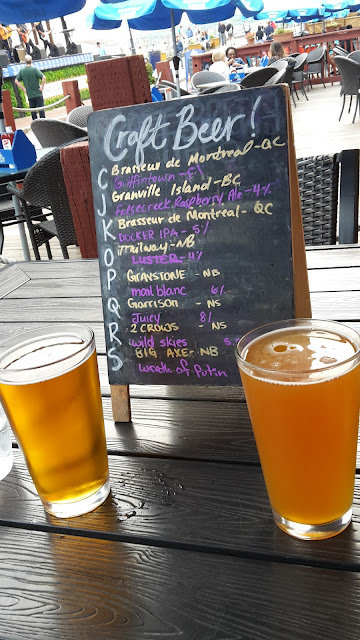 Craft Beer!
C Brasseur de Montreal - QC
Griffintown - 5%
J Granville Island - BC
False creek Raspberry Ale - 4%
K Brasseur de Montreal - QC
DOCKER IPA - 5%
O Trailway - NB
LUSTER - 4%
P GRAYSTONE - NB
mont blanc 6%
Q Garrison - NS
Juicy 8%
R 2 CROWS - NS
wild skies 5
S BIG AXE - NB
wrath of Putin